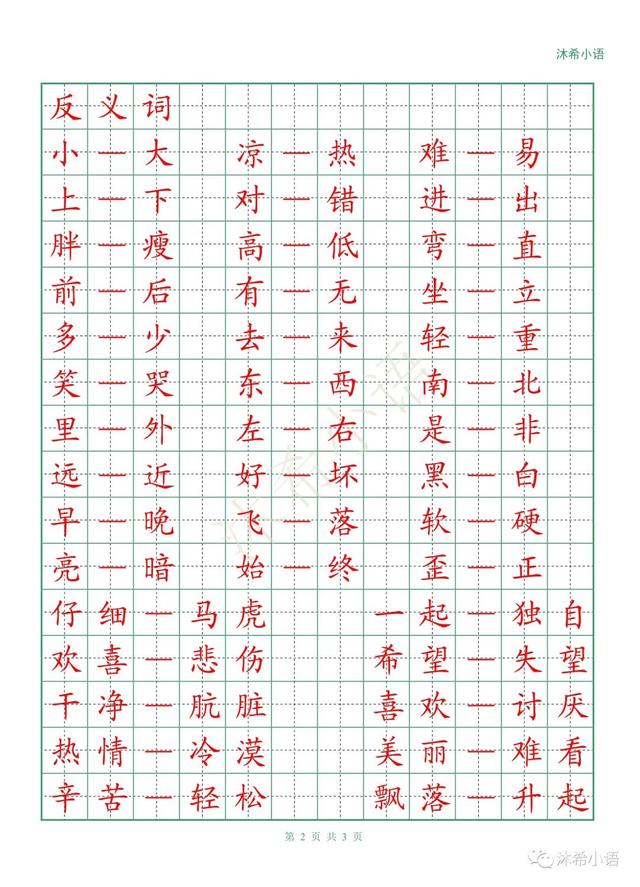 沐希小语
反义词
小—大 凉—热 难—易
上—下 对—错 进—出
胖—瘦 高—低 弯—直
前—后 有—无 坐—立
多—少 去—来 轻—重
笑—哭 东—西 南—北
里—外 左—右 是—非
远—近 好—坏 黑—白
早—晚 飞—落 软—硬
亮—暗 始—终 歪—正
仔细—马虎 一起—独自
欢喜—悲伤 希望—失望
干净—肮脏 喜欢—讨厌
热情—冷漠 美丽—难看
辛苦—轻松 飘落—升起
沐希小语
第 2 页 共 3 页
沐希小语